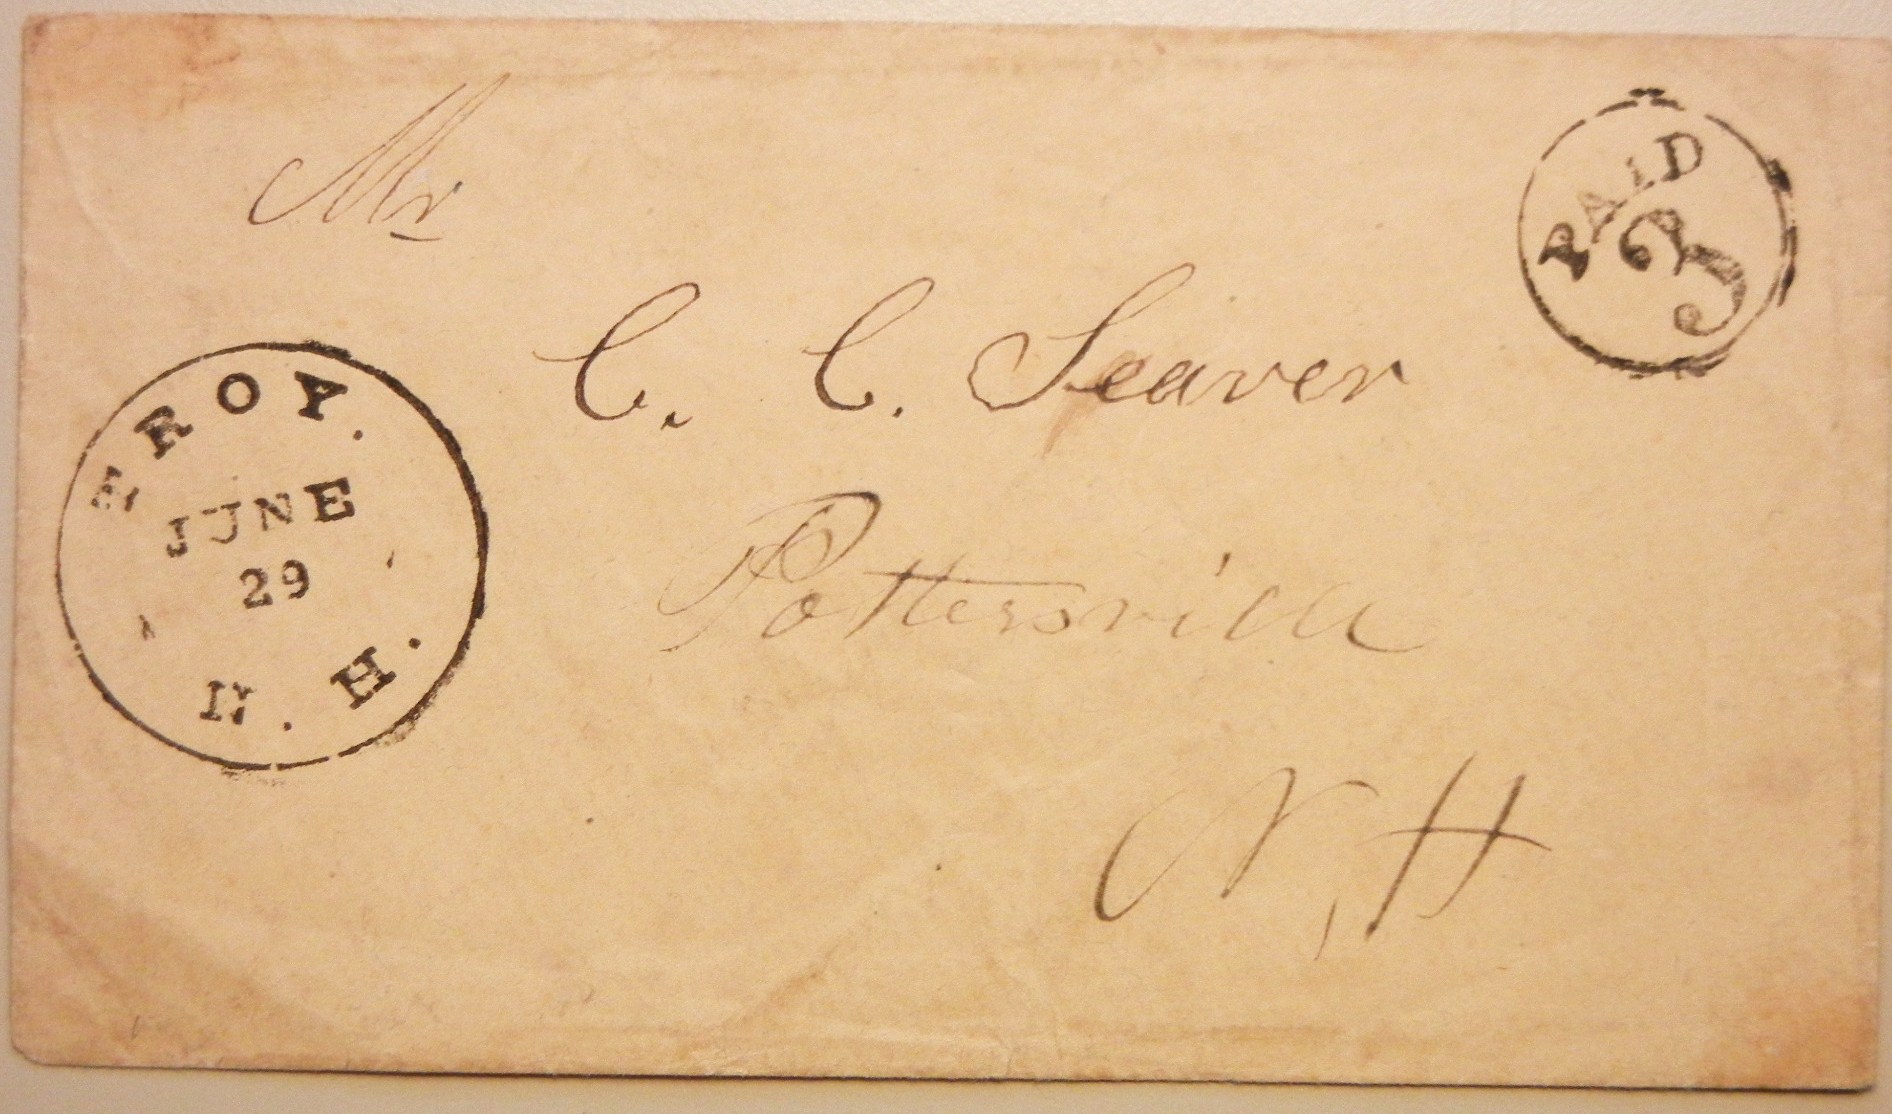 Mr
PAID
3
C. C. Seaver
TROY.
JUNE
29
N. H.
Pottersville
N, H